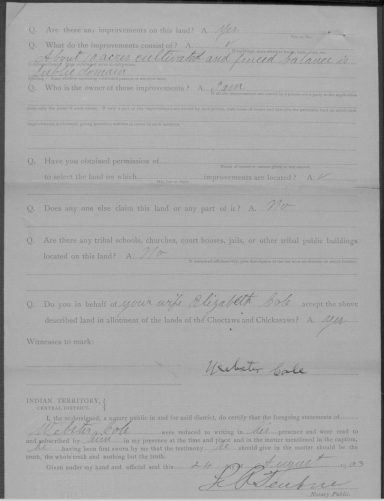 Q. Are there any improvements on this land? A. Yes
Q. What do the improvements consist of? A.
About 10 acres cultivated and fenced balance is
public domain
Q. Who is the owner of those improvements? A. I am
Q. Have you obtained permission of
to select the land on which improvements are located? A.
Q. Does any one else claim this land or any part of it? A. No
Q. Are there any tribal schools, churches, court houses, jails, or other tribal public buildings
located on this land? A. No
Q. Do you in behalf of your wife Elizabeth Cole accept the above
described land in allotment of the lands of the Choctaws and Chickasaws? A. Yes
Witnesses to mark:
Webster Cole
INDIAN TERRITORY,
CENTRAL DISTRICT.
I, the undersigned, a notary public in and for said district, do certify that the foregoing statements of
Webster Cole were reduced to writing in presence and were read to
and subscribed by him in my presence at the time and place and in the matter mentioned in the caption,
he having been first sworn by me that the testimony he should give in the matter should be the
truth, the whole truth and nothing but the truth.
Given under my hand and official seal this 24 August 03
Notary Public.